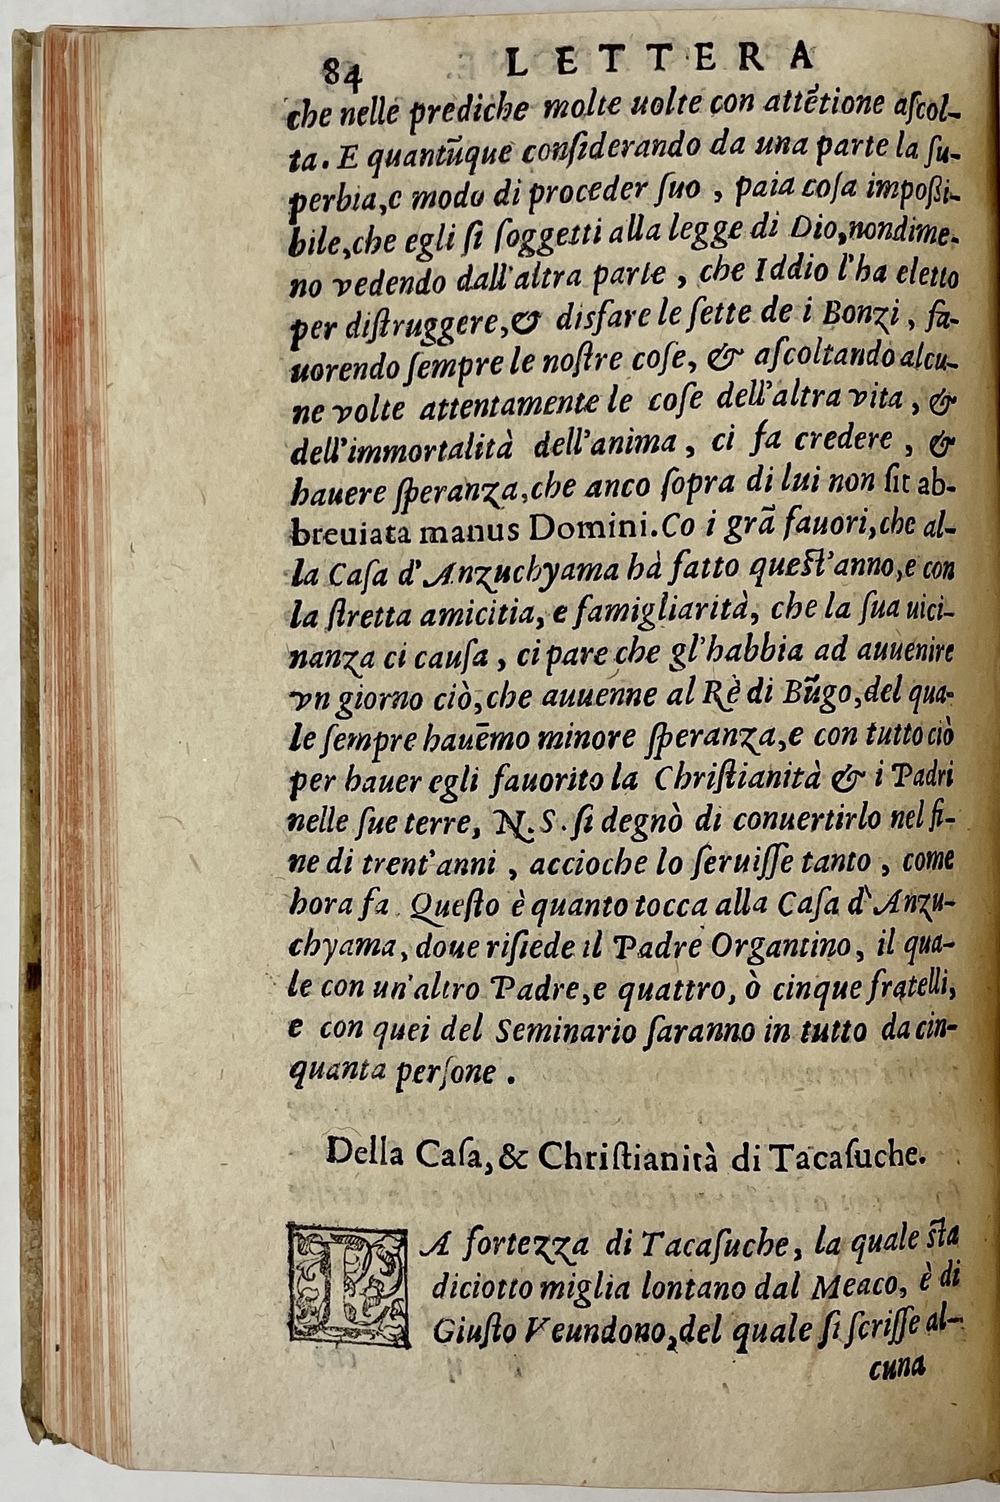 84 LETTERA
che nelle prediche molte uolte con attẽtione aſcol-
ta. E quantũque conſiderando da una parte la ſu-
perbia,e modo di proceder ſuo , paia coſa impoßi-
bile,che egli ſi ſoggetti alla legge di Dio,nondime-
no vedendo dall'altra parte , che Iddio l'ha eletto
per diſtruggere,& disfare le ſette de i Bonzi , fa-
uorendo ſempre le noſtre coſe, & aſcoltando alcu-
ne volte attentamente le coſe dell'altra vita , &
dell'immortalità dell'anima , ci fa credere , &
hauere ſperanza,che anco ſopra di lui non ſit ab-
breuiata manus Domini. Co i grã fauori,che al-
la Caſa d'Anzuchyama hà fatto queſt'anno,e con
la ſtretta amicitia, e famigliarità, che la ſua uici-
nanza ci cauſa , ci pare che gl'habbia ad auuenire
vn giorno ciò,che auuenne al Rè di Bũgo,del qua-
le ſempre hauẽmo minore ſperanza,e con tutto ciò
per hauer egli fauorito la Chriſtianità & i Padri
nelle ſue terre, N.S. ſi degnò di conuertirlo nel fi-
ne di trent'anni , accioche lo ſeruiſſe tanto , come
hora fa. Queſto è quanto tocca alla Caſa d'Anzu-
chyama, doue riſiede il Padre Organtino, il qua-
le con un'altro Padre,e quattro, ò cinque fratelli,
e con quei del Seminario ſaranno in tutto da cin-
quanta perſone .
Della Caſa, & Chriſtianità di Tacaſuche.
LA fortezza di Tacaſuche, la quale ſta
diciotto miglia lontano dal Meaco, è di
Giuſto Veundono,del quale ſi ſcriſſe al-
cuna